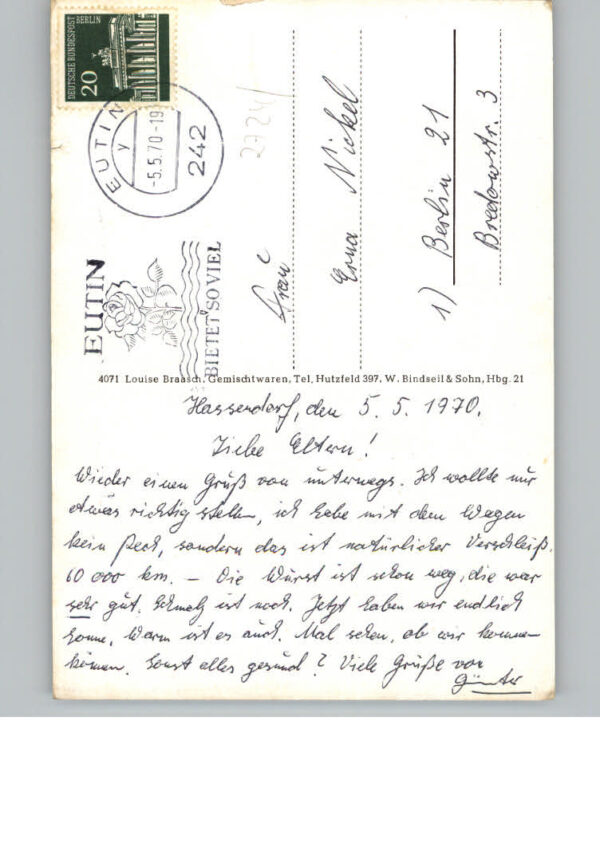 DEUTSCHE BUNDESPOST BERLIN
20
EUTIN
y
-5.5.70-19
242
EUTIN
BIETET SO VIEL
2724/
Frau
Erna Nickel
1) Berlin 21
Bredowstr. 3
4071 Louise Braasch, Gemischtwaren, Tel. Hutzfeld 397, W. Bindseil & Sohn, Hbg. 21
Hassendorf, den 5. 5. 1970.
Liebe Eltern!
Wieder einen Gruß von unterwegs. Ich wollte nur
etwas richtig stellen, ich habe mit dem Wagen
kein Pech, sondern das ist natürlicher Verschleiß.
60 000 km. – Die Wurst ist schon weg, die war
sehr gut. Schmalz ist noch. Jetzt haben wir endlich
Sonne. Warm ist es auch. Mal sehen, ob wir kommen
können. Sonst alles gesund? Viele Grüße von
Günter